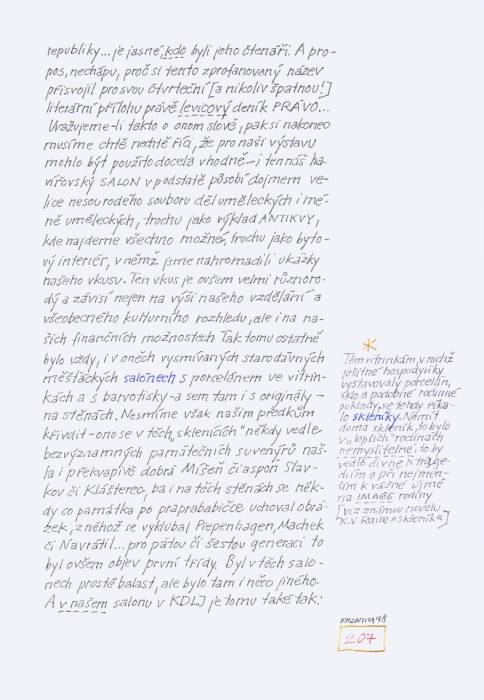 republiky... je jasné, kdo byli jeho čtenáři. A pro-
pos, nechápu, proč si tento zprofanovaný název
přisvojil pro svou čtvrteční [a nikoliv špatnou!]
literární přílohu právě levicový deník PRÁVO...
Uvažujeme-li takto o onom slově, pak si nakonec
musíme chtě nechtě říci, že pro naši výstavu
mohlo být použito docela vhodně – i ten náš ha-
vířovský SALON v podstatě působí dojmem ve-
lice nesourodého souboru děl uměleckých i mé-
ně uměleckých, trochu jako výklad ANTIKVY,
kde najdeme všechno možné, trochu jako byto-
vý interiér, v němž jsme nahromadili ukázky
našeho vkusu. Ten vkus je ovšem velmi různoro-
dý a závisí nejen na výši našeho vzdělání a
všeobecného kulturního rozhledu, ale i na na-
šich finančních možnostech. Tak tomu ostatně
bylo vždy, i v oněch vysmívaných starodávných
měšťáckých salónech s porcelánem ve vitrín-
kách a s barvotisky - a sem tam i s originály –
na stěnách. Nesmíme však našim předkům
křivdit - ono se v těch „sklenících" někdy vedle
bezvýznamných památečních suvenýrů naš-
la i překvapivě dobrá Míšeň či aspoň Slav-
kov či Klášterec, ba i na těch stěnách se něk-
dy co památka po praprababičce uchoval obrá-
zek, z něhož se vyklubal Piepenhagen, Machek
či Navrátil... pro pátou či šestou generaci to
byl ovšem objev první třídy. Byl v těch salo-
nech prostě balast, ale bylo tam i něco jiného.
A v našem salonu v KDLJ je tomu také tak:
*
Těm vitrínkám, v nichž
ješitné hospodyňky
vystavovaly porcelán,
sklo a podobné rodinné
poklady, se tehdy říka-
lo skleníky. Nemít
doma skleník, to bylo
v „lepších" rodinách
nemyslitelné; to by
vedlo divne k tragé-
dii a při nejmen-
ším k vážné újmě
na IMAGE rodiny
[viz známou novelu
K. V. Raise »Skleník«]
98
207